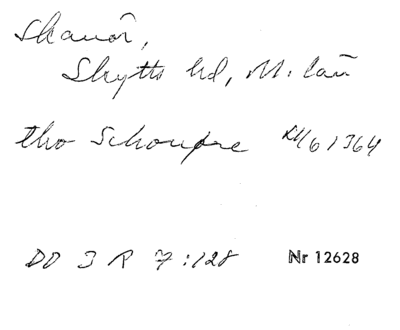 Skanör,
Skytts hd, M. län
tho Schonøre 11/6 1364
DD 3 R 7:128 Nr 12628